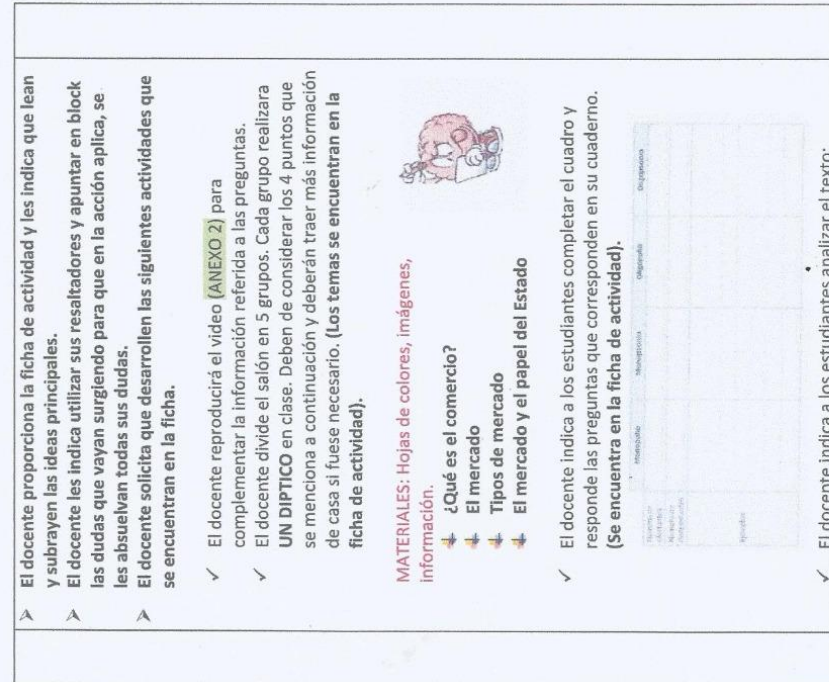 El docente proporciona la ficha de actividad y les indica que lean
y subrayen las ideas principales.
El docente les indica utilizar sus resaltadores y apuntar en block
las dudas que vayan surgiendo para que en la acción aplica, se
les absuelvan todas sus dudas.
El docente solicita que desarrollen las siguientes actividades que
se encuentran en la ficha.
El docente reproducirá el video (ANEXO 2) para
complementar la información referida a las preguntas.
El docente divide el salón en 5 grupos. Cada grupo realizara
UN DIPTICO en clase. Deben de considerar los 4 puntos que
se menciona a continuación y deberán traer más información
de casa si fuese necesario. (Los temas se encuentran en la
ficha de actividad).
MATERIALES: Hojas de colores, imágenes,
información.
¿Qué es el comercio?
El mercado
Tipos de mercado
El mercado y el papel del Estado
El docente indica a los estudiantes completar el cuadro y
responde las preguntas que corresponden en su cuaderno.
(Se encuentra en la ficha de actividad).
Monopolio Monopsonio Oligopolio Oligopsonio
Ejemplos
El docente indica a los estudiantes analizar el texto: